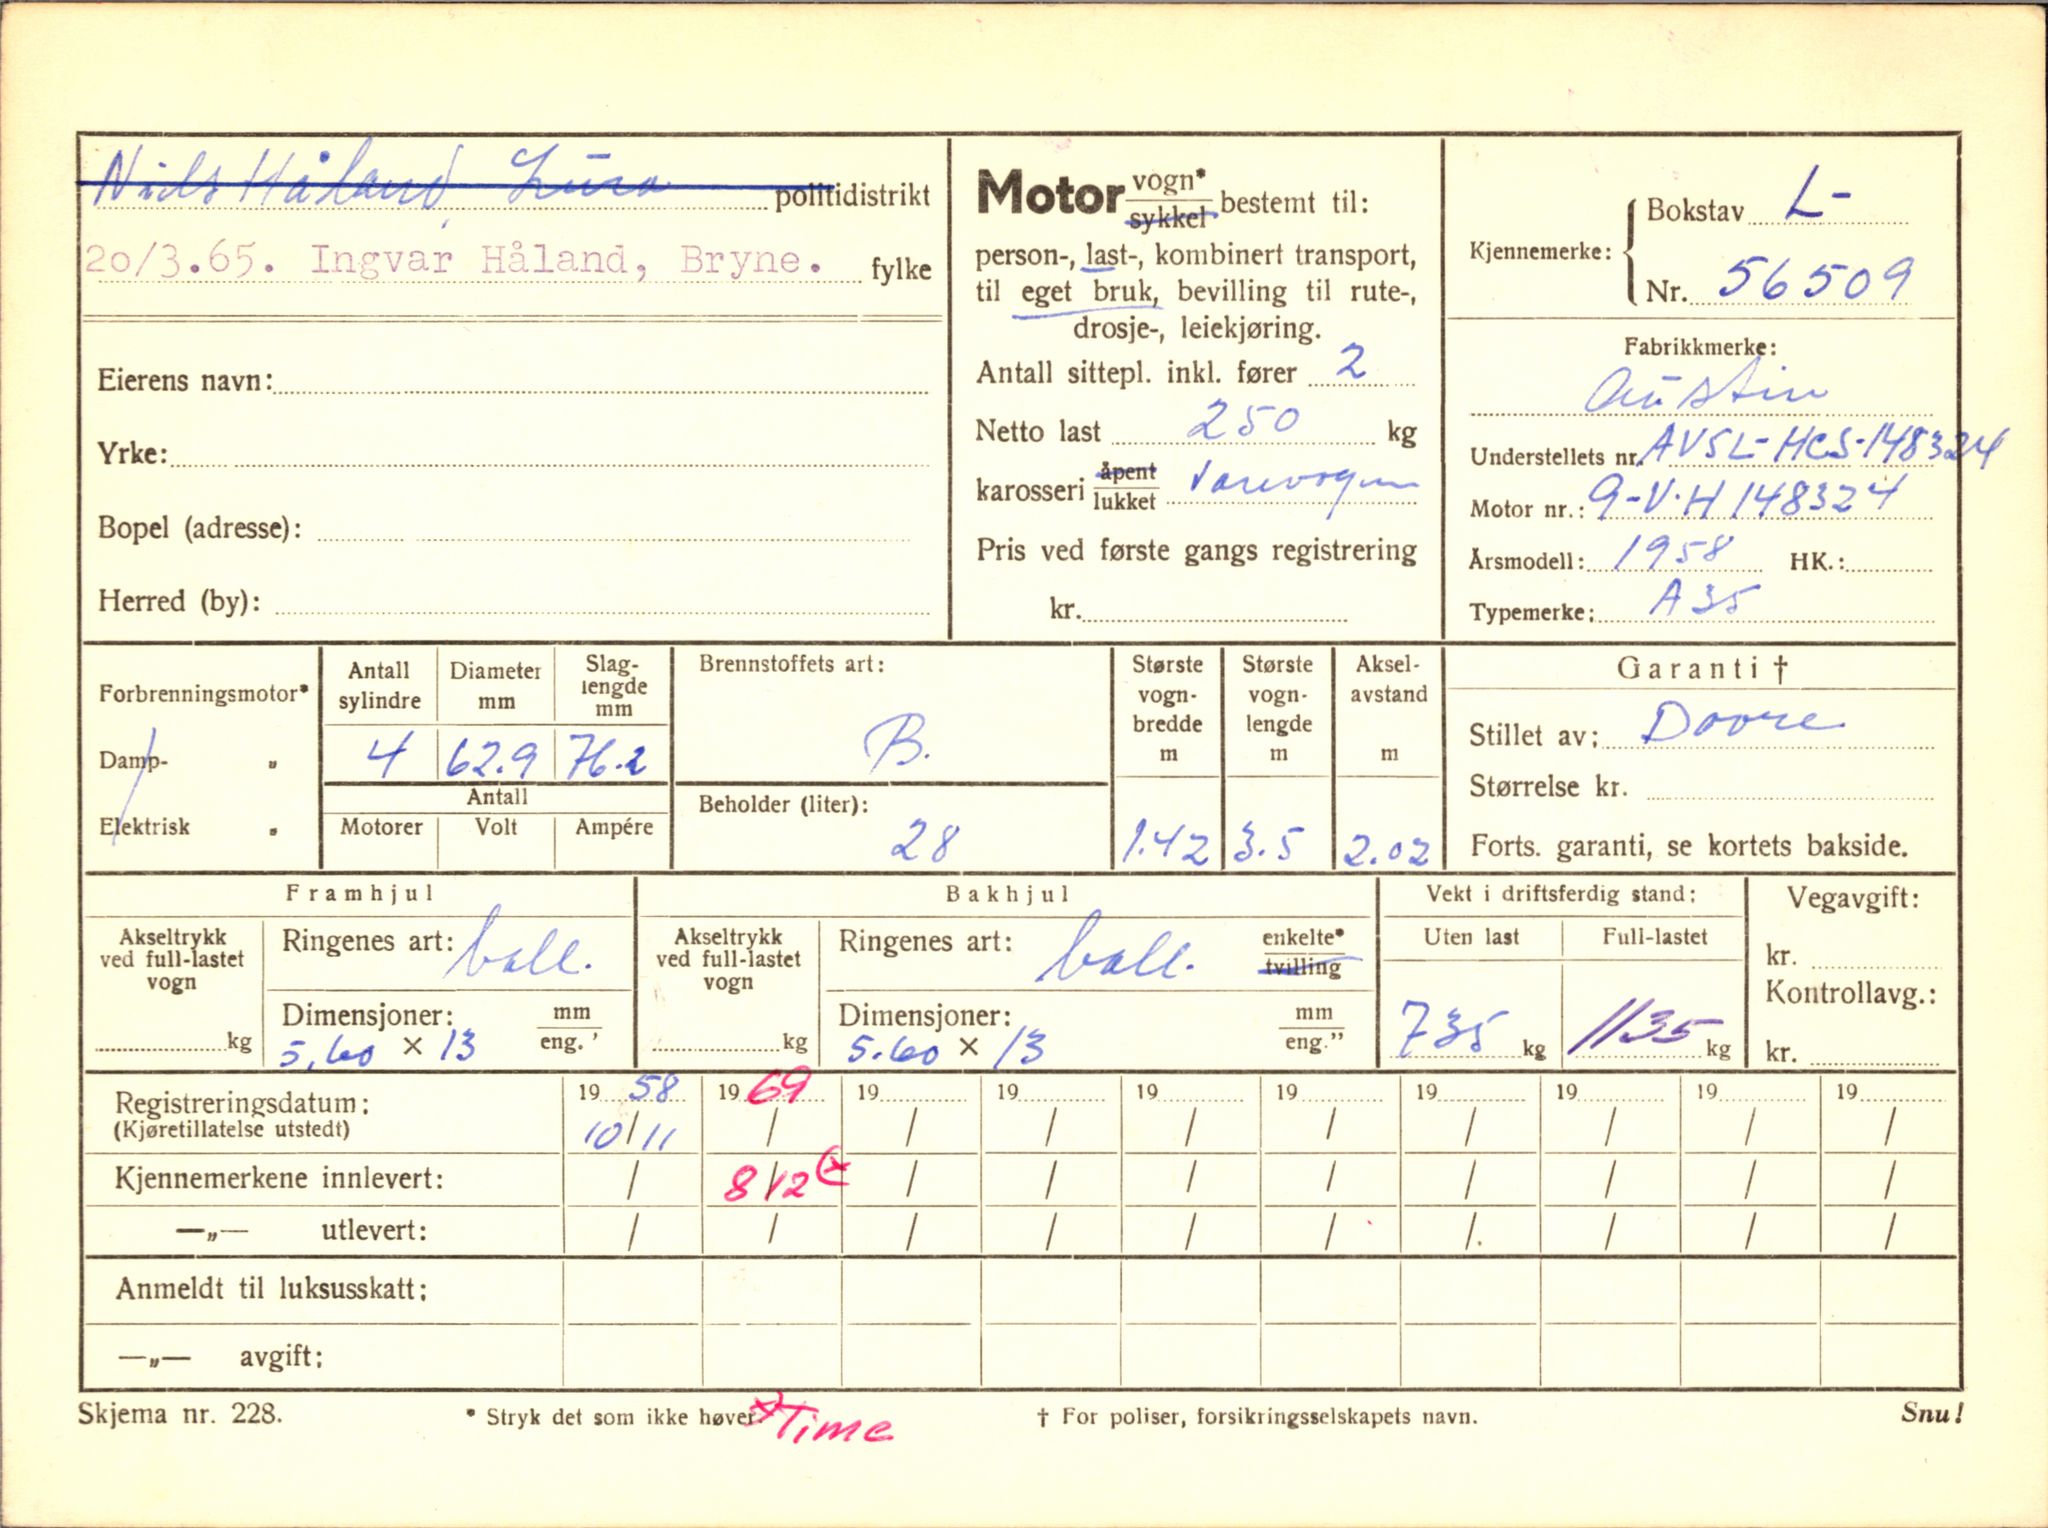 Niels Håland, Lura politidistrikt
20/3.65. Ingvar Håland, Bryne. fylke
Eierens navn:
Yrke:
Bopel (adresse):
Herred (by):
Motor vogn* sykkel bestemt til:
person-, last-, kombinert transport,
til eget bruk, bevilling til rute-,
drosje-, leiekjøring.
Antall sittepl. inkl. fører 2
Netto last 250 kg
karosseri åpent lukket Varevogn
Pris ved første gangs registrering
kr.
Kjennemerke:
Bokstav L-
Nr. 56509
Fabrikkmerke:
Austin
Understellets nr. AVSL-HCS-148324
Motor nr.: 9-V-H 148324
Årsmodell: 1958 HK.:
Typemerke: A 35
Forbrenningsmotor*
Damp- „
Elektrisk „
Antall sylindre
Diameter mm
Slag-
lengde
mm
4 62.9 76.2
Antall
Motorer Volt Ampére
Brennstoffets art:
B.
Beholder (liter):
28
Største
vogn-
bredde
m
1.42
Største
vogn-
lengde
m
3.5
Aksel-
avstand
m
2.02
Garanti †
Stillet av:
Størrelse kr.
Forts. garanti, se kortets bakside.
Framhjul
Akseltrykk
ved full-lastet
vogn
kg
Ringenes art: ball.
Dimensjoner: mm eng. '
5.60 × 13
Bakhjul
Akseltrykk
ved full-lastet
vogn
kg
Ringenes art: ball. enkelte* tvilling
Dimensjoner: mm eng."
5.60 × 13
Vekt i driftsferdig stand:
Uten last Full-lastet
735 kg 1135 kg
Vegavgift:
kr.
Kontrollavg.:
kr.
Registreringsdatum: 19 58 19 69 19 19 19 19 19 19 19 19
(Kjøretillatelse utstedt) 10/11 / / / / / / / / /
Kjennemerkene innlevert: / 8/12 (x / / / / / / / /
—„— utlevert: / / / / / / / / / /
Anmeldt til luksusskatt:
—„— avgift:
Skjema nr. 228. * Stryk det som ikke høver. x) Time † For poliser, forsikringsselskapets navn. Snu!